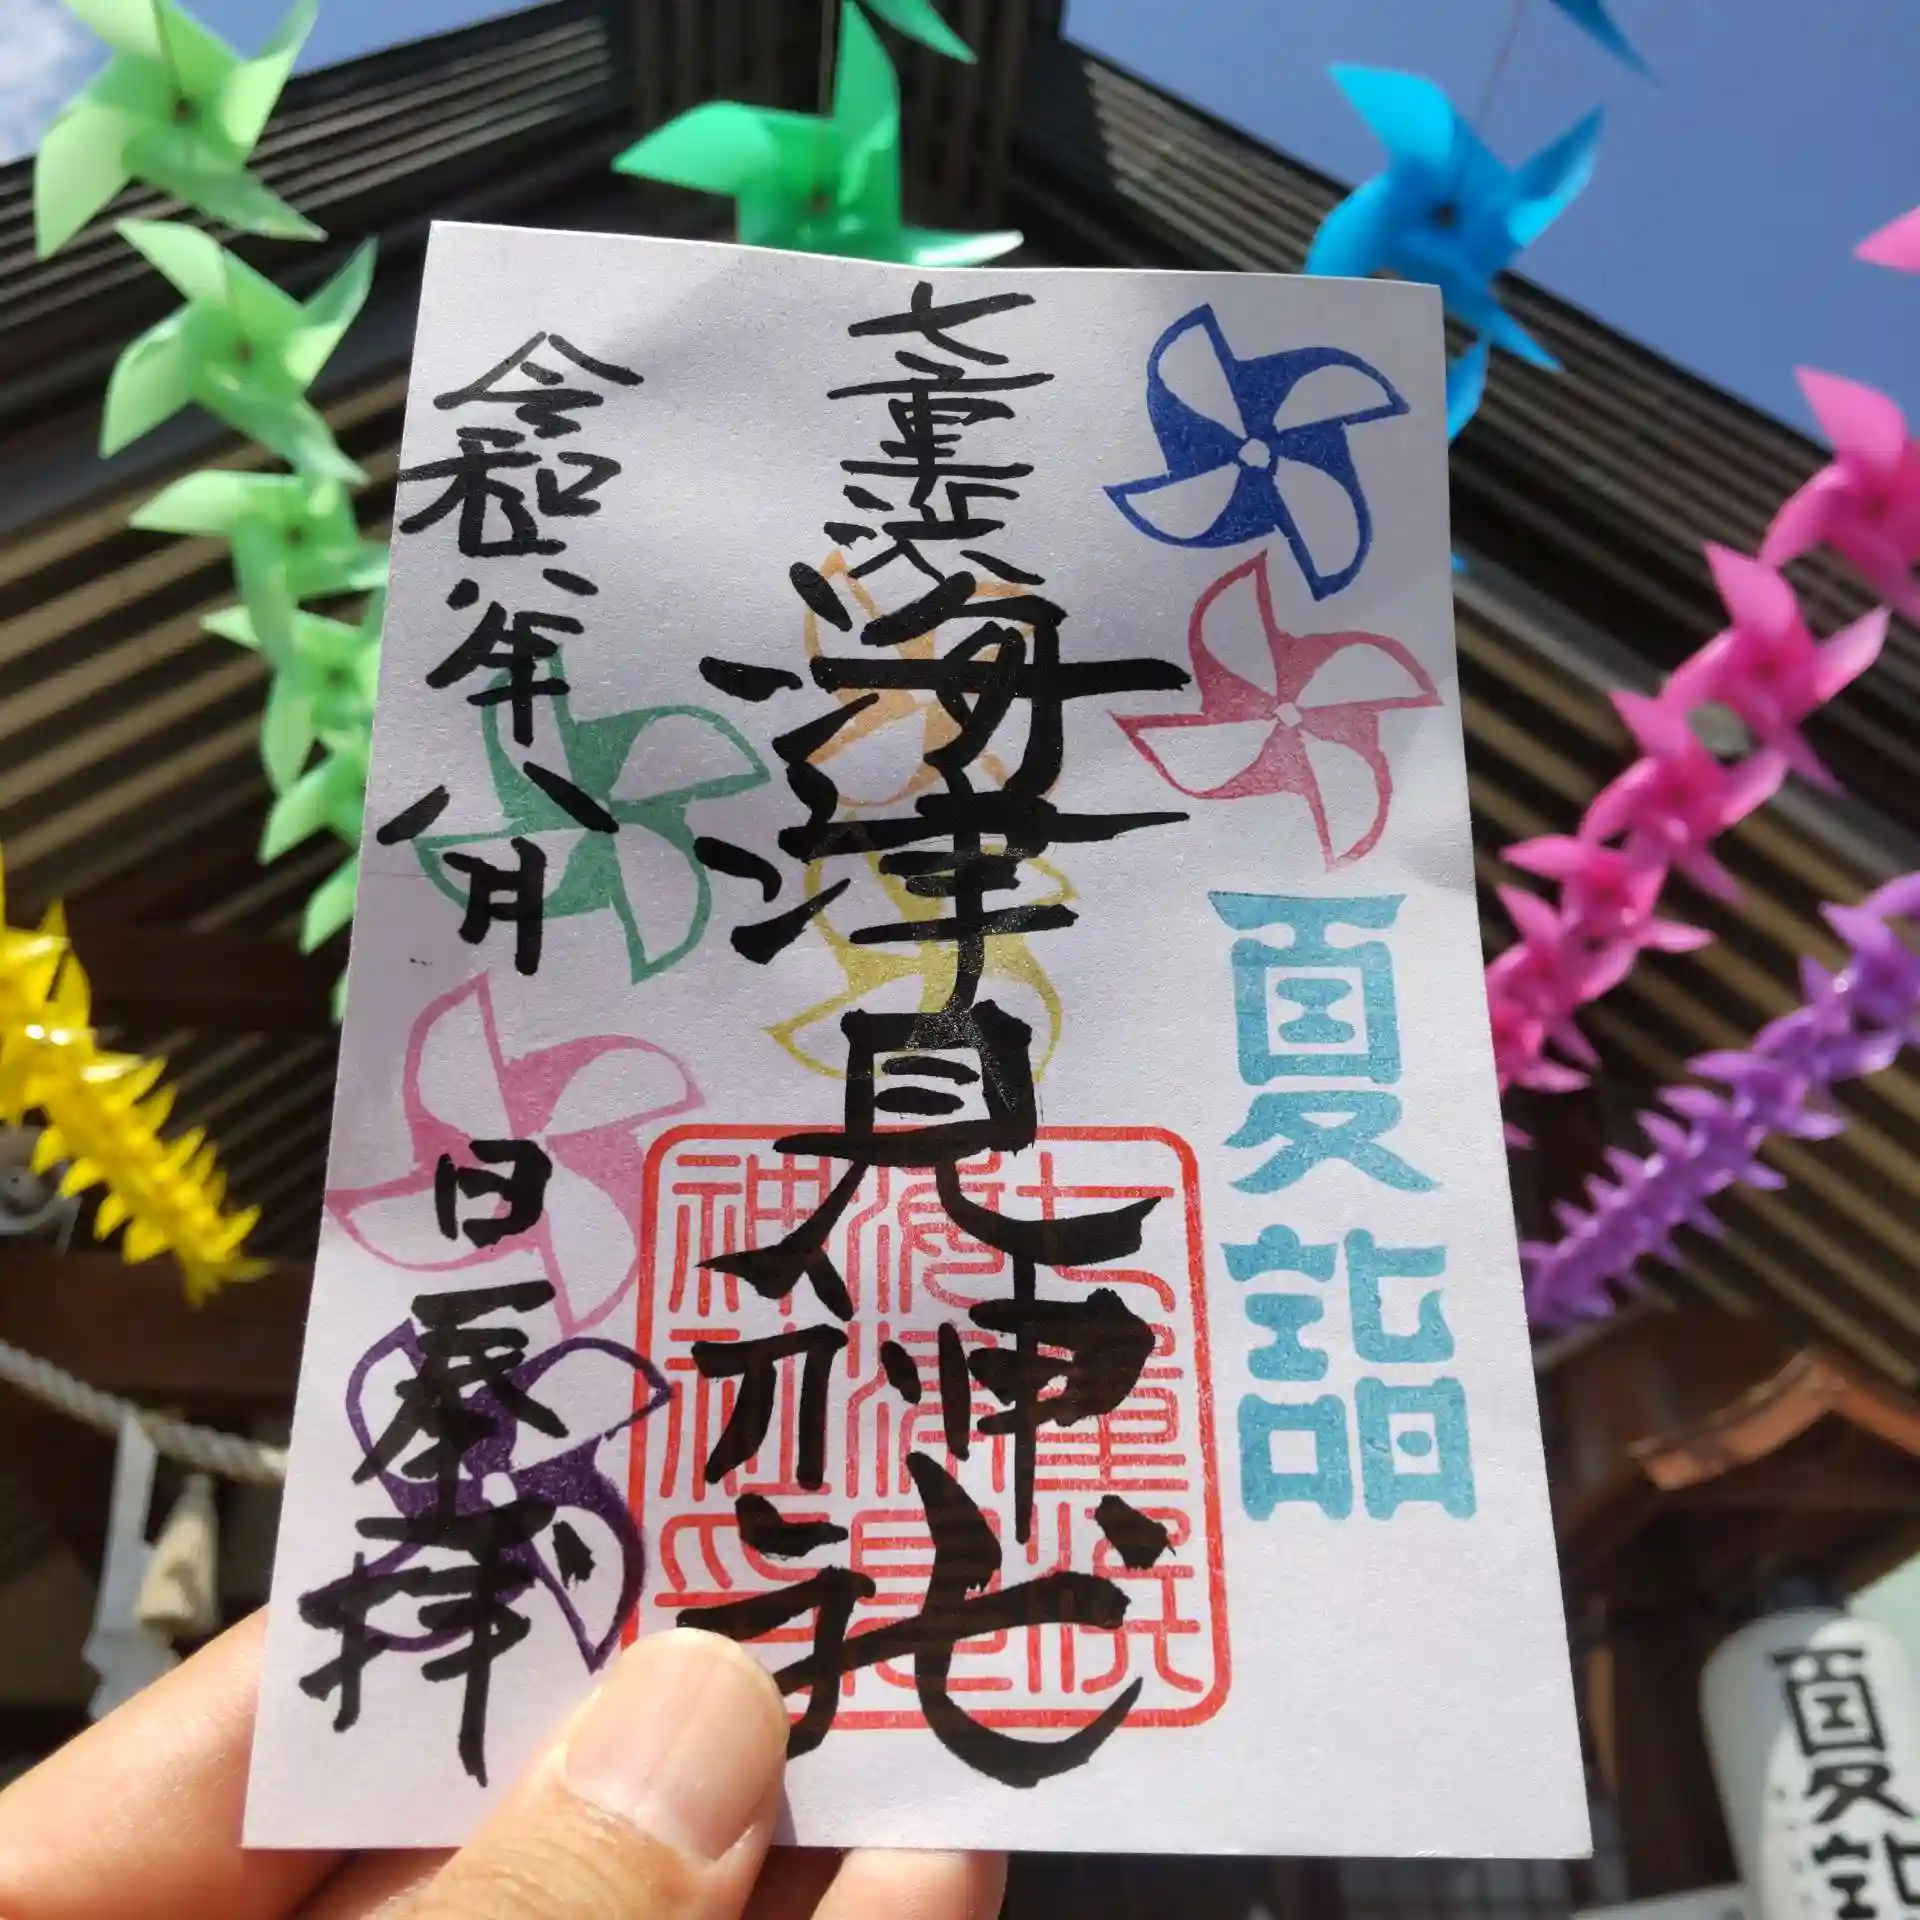 夏詣
七重浜
海津見神社
七重浜
海津見
神社印
令和六年八月 日
奉拝
夏詣